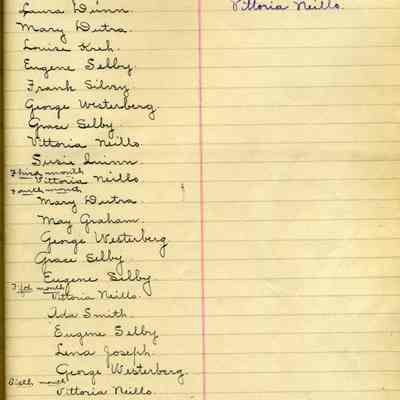 Laura Quinn.
Mary Dutra.
Louise Kreh.
Eugene Selby.
Frank Silvey
George Westerberg.
Grace Selby.
Vittoria Neillo
Susie Quinn.
Third month
Vittoria Neillo
Fourth month
Mary Dutra.
May Graham.
George Westerberg
Grace Selby.
Eugene Selby.
Fifth month
Vittoria Neillo.
Ada Smith.
Eugene Selby
Lena Joseph.
George Westerberg.
Sixth month
Vittoria Neillo.
Vittoria Neillo.